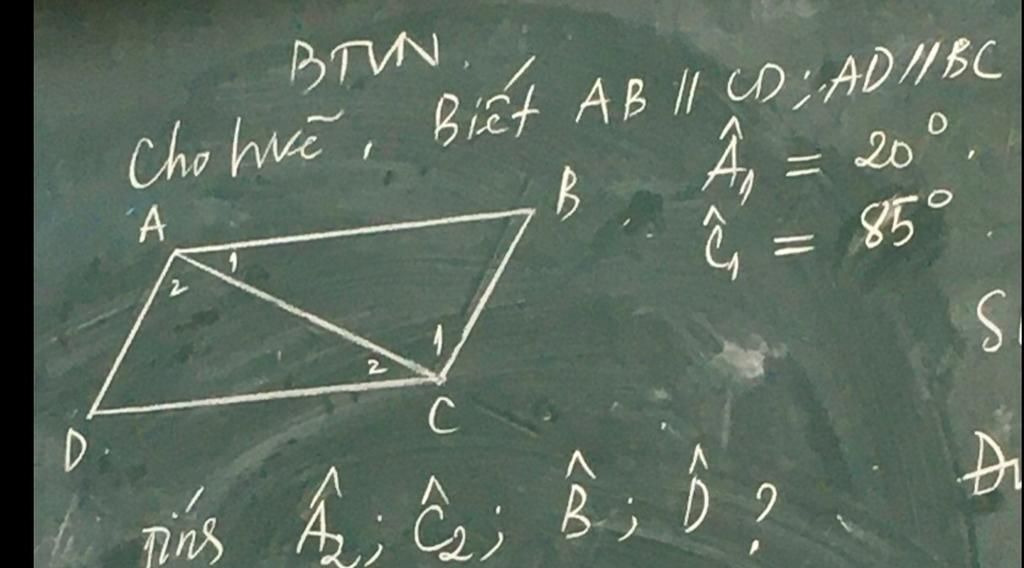 BTVN.
Cho hvẽ. Biết AB // CD; AD // BC
Â₁ = 20°.
Ĉ₁ = 85°
A
B
1
2
1
2
C
D
S
Tính Â₂; Ĉ₂; B̂; D̂?